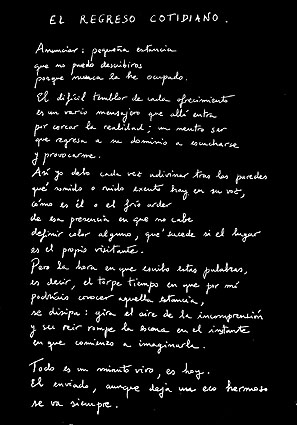 EL REGRESO COTIDIANO.
Anunciar: pequeña estancia
que no puedo describiros
porque nunca la he ocupado.
El difícil temblor de cada ofrecimiento
es un vario mensajero que allá entra
por cercar la realidad; un neutro ser
que regresa a su dominio a escucharse
y provocarme.
Así yo debo cada vez adivinar tras las paredes
qué sonido o ruido exacto hay en su voz,
cómo es él o el frío arder
de esa presencia en que no cabe
definir color alguno, qué sucede si el lugar
es el propio visitante.
Pero la hora en que escribo estas palabras,
es decir, el torpe tiempo en que por mí
podríais conocer aquella estancia,
se disipa: gira el aire de la incomprensión
y su reír rompe la escena en el instante
en que comienzo a imaginarla.
Todo es un minuto vivo, es hoy.
El enviado, aunque deja un eco hermoso
se va siempre.